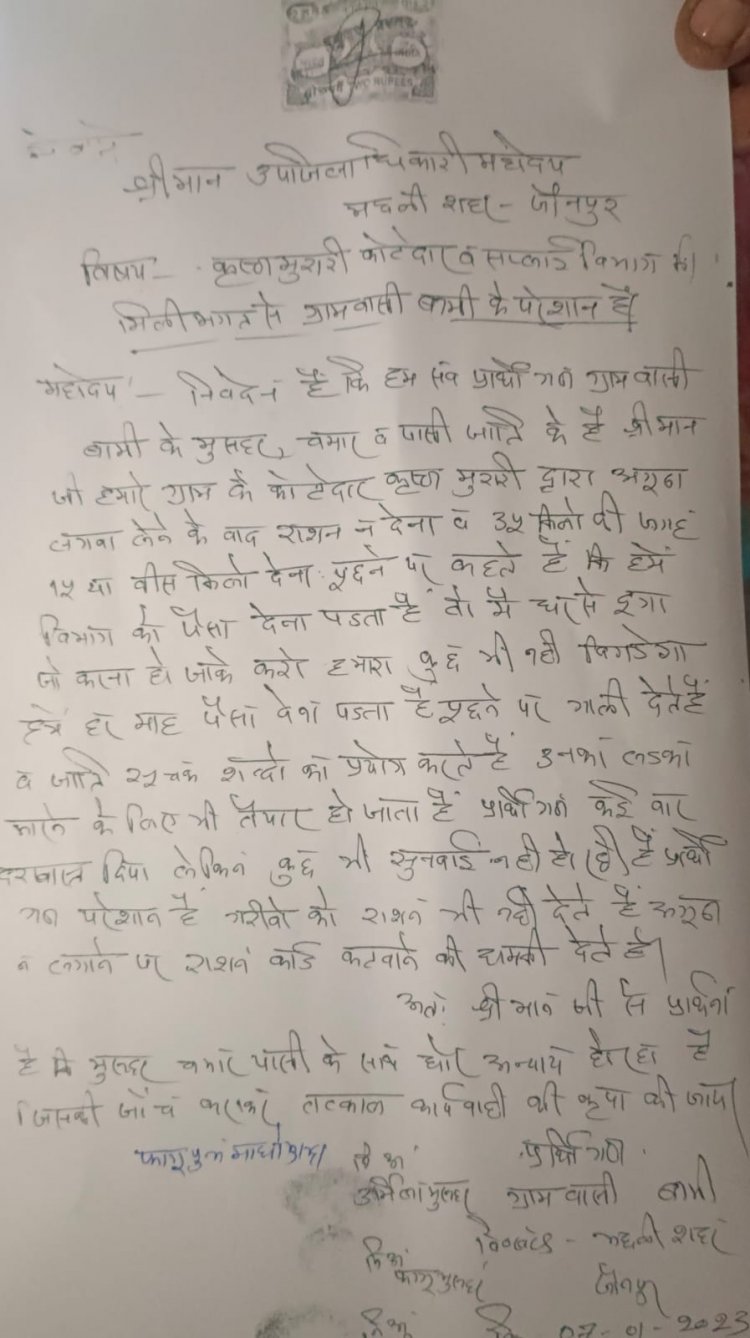 सेवा में
श्रीमान उपजिलाधिकारी महोदय
मछली शहर - जौनपुर
विषय - कृष्णा मुरारी कोटेदार व सप्लाई विभाग की
मिली भगत से ग्रामवासी बामी के परेशान हैं
महोदय - निवेदन हैं कि हम सब प्रार्थी गण ग्राम वासी
बामी के मुसहर, चमार व पासी जाति के हैं श्रीमान
जो हमारे ग्राम के कोटेदार कृष्णा मुरारी द्वारा अगूठा
लगवा लेने के वाद राशन न देना व ३५ किलो की जगह
१५ या वीस किलो देना पूछने पर कहते हैं कि हमें
विभाग को पैसा देना पडता हैं तो मै घर से दूगा
जो करना हो जाके करो हमारा कुछ भी नही विगडेगा
हमें हर माह पैसा देना पडता है पूछने पर गाली देते हैं
व जाति सूचक शब्दो का प्रयोग करते हैं उनका लडका
मारने के लिए भी तैयार हो जाता हैं प्रार्थी गण कई वार
दरखास्त दिया लेकिन कुछ भी सुनवाई नही हो रही हैं प्रार्थी
गण परेशान हैं गरीवो को राशन भी नही देते हैं अगूठा
न लगाने पर राशन कार्ड कटवाने की धमकी देते हैं।
अतः श्री मान जी से प्रार्थना
है कि मुसहर चमार पासी के साथ घोर अन्याय हो रहा है
जिसकी जाँच कराकर तत्काल कार्यवाही की कृपा की जाय।
प्रार्थी गण
उर्मिला मुसहर ग्राम वासी बामी
विo खंड - मछली शहर
जौनपुर
07-01-2023